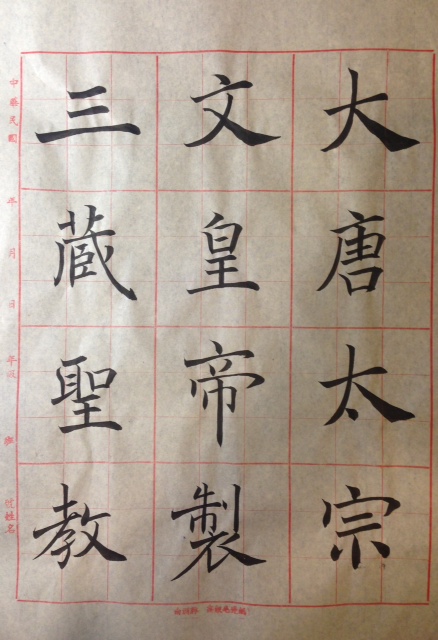 大唐太宗
文皇帝製
三藏聖教
中華民國
年
月
日
年級
班
姓名